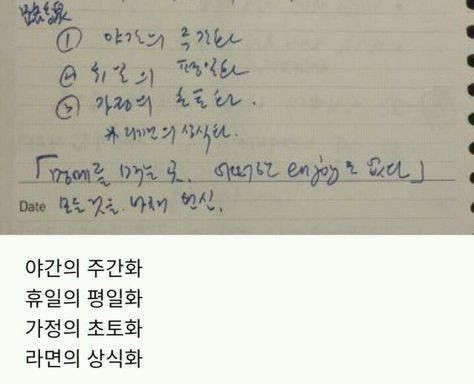 路線
① 야간의 주간화
② 휴일의 평일화
③ 가정의 초토화.
*라면의 상식화.
「명예를 먹는 곳. 어떠한 태형도 없다」
Date 모든 것을. 나체 헌신.
야간의 주간화
휴일의 평일화
가정의 초토화
라면의 상식화